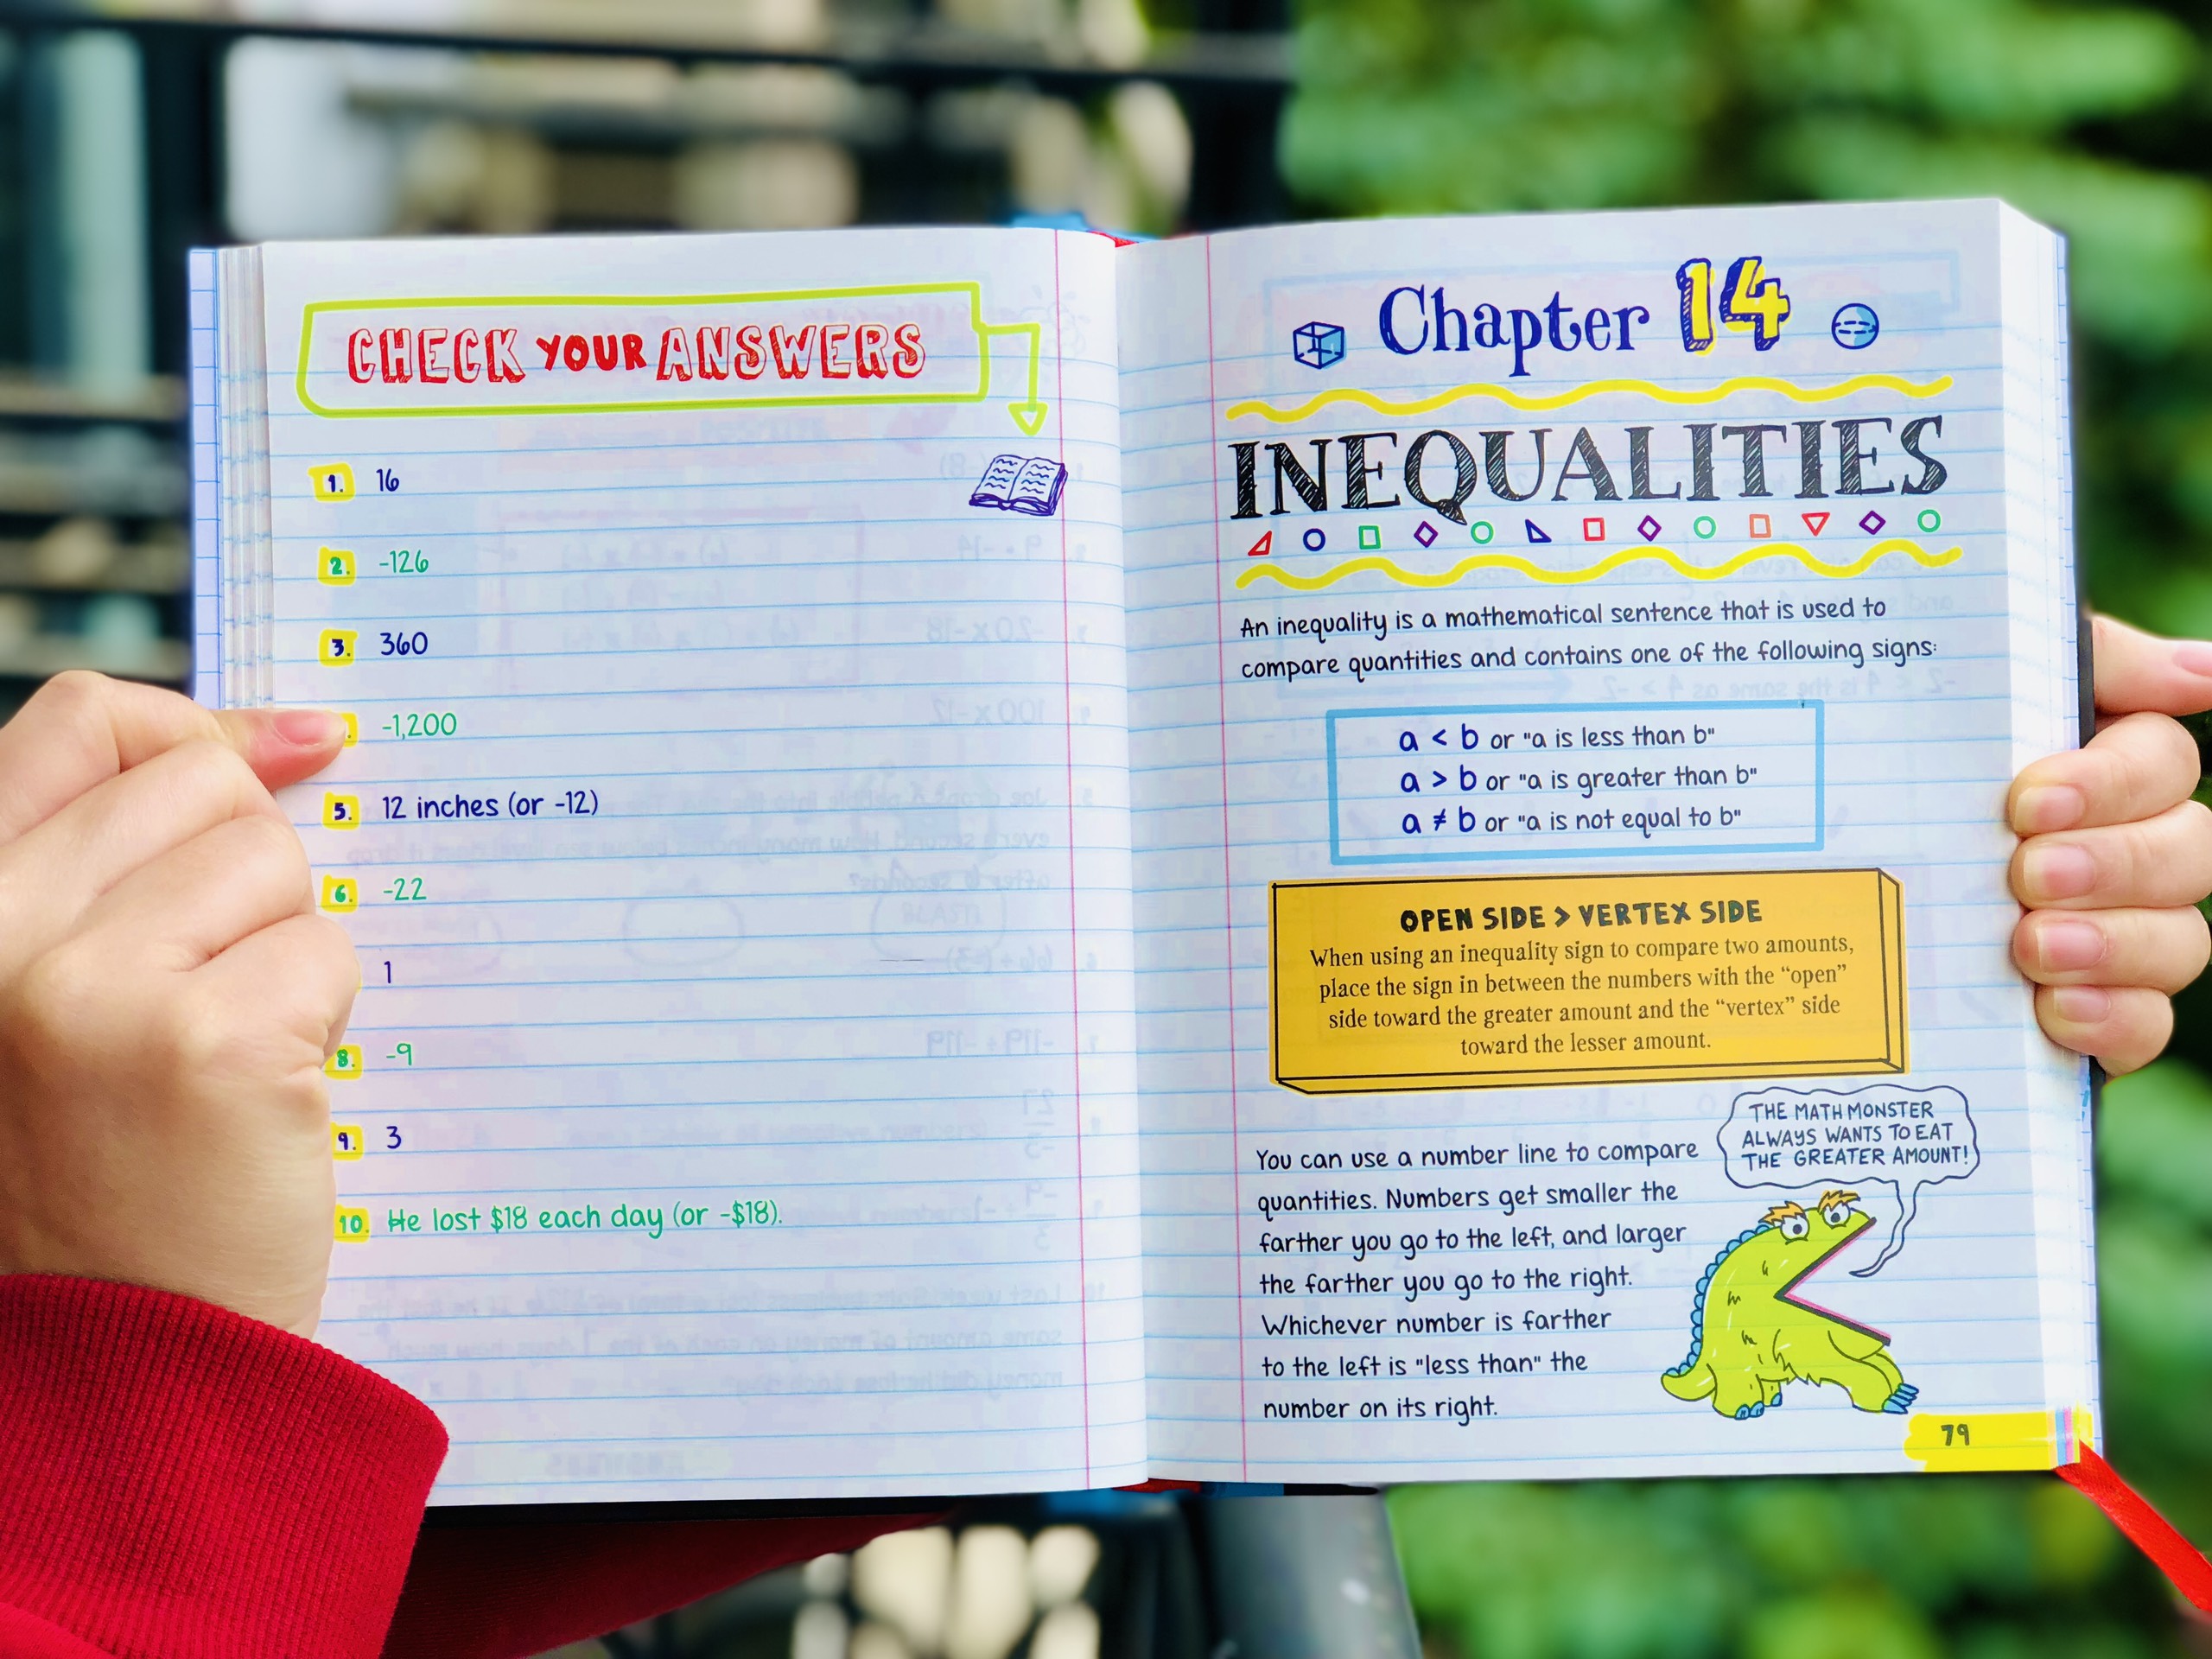 CHECK YOUR ANSWERS
1. 16
2. -126
3. 360
. -1,200
5. 12 inches (or -12)
6. -22
1
8. -9
9. 3
10. He lost $18 each day (or -$18).
Chapter 14
INEQUALITIES
An inequality is a mathematical sentence that is used to
compare quantities and contains one of the following signs:
a < b or "a is less than b"
a > b or "a is greater than b"
a ≠ b or "a is not equal to b"
OPEN SIDE > VERTEX SIDE
When using an inequality sign to compare two amounts,
place the sign in between the numbers with the “open”
side toward the greater amount and the “vertex” side
toward the lesser amount.
You can use a number line to compare
quantities. Numbers get smaller the
farther you go to the left, and larger
the farther you go to the right.
Whichever number is farther
to the left is "less than" the
number on its right.
THE MATH MONSTER
ALWAYS WANTS TO EAT
THE GREATER AMOUNT!
79